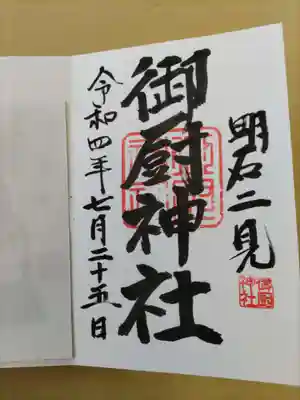 明石二見
御厨神社
令和四年七月二十五日